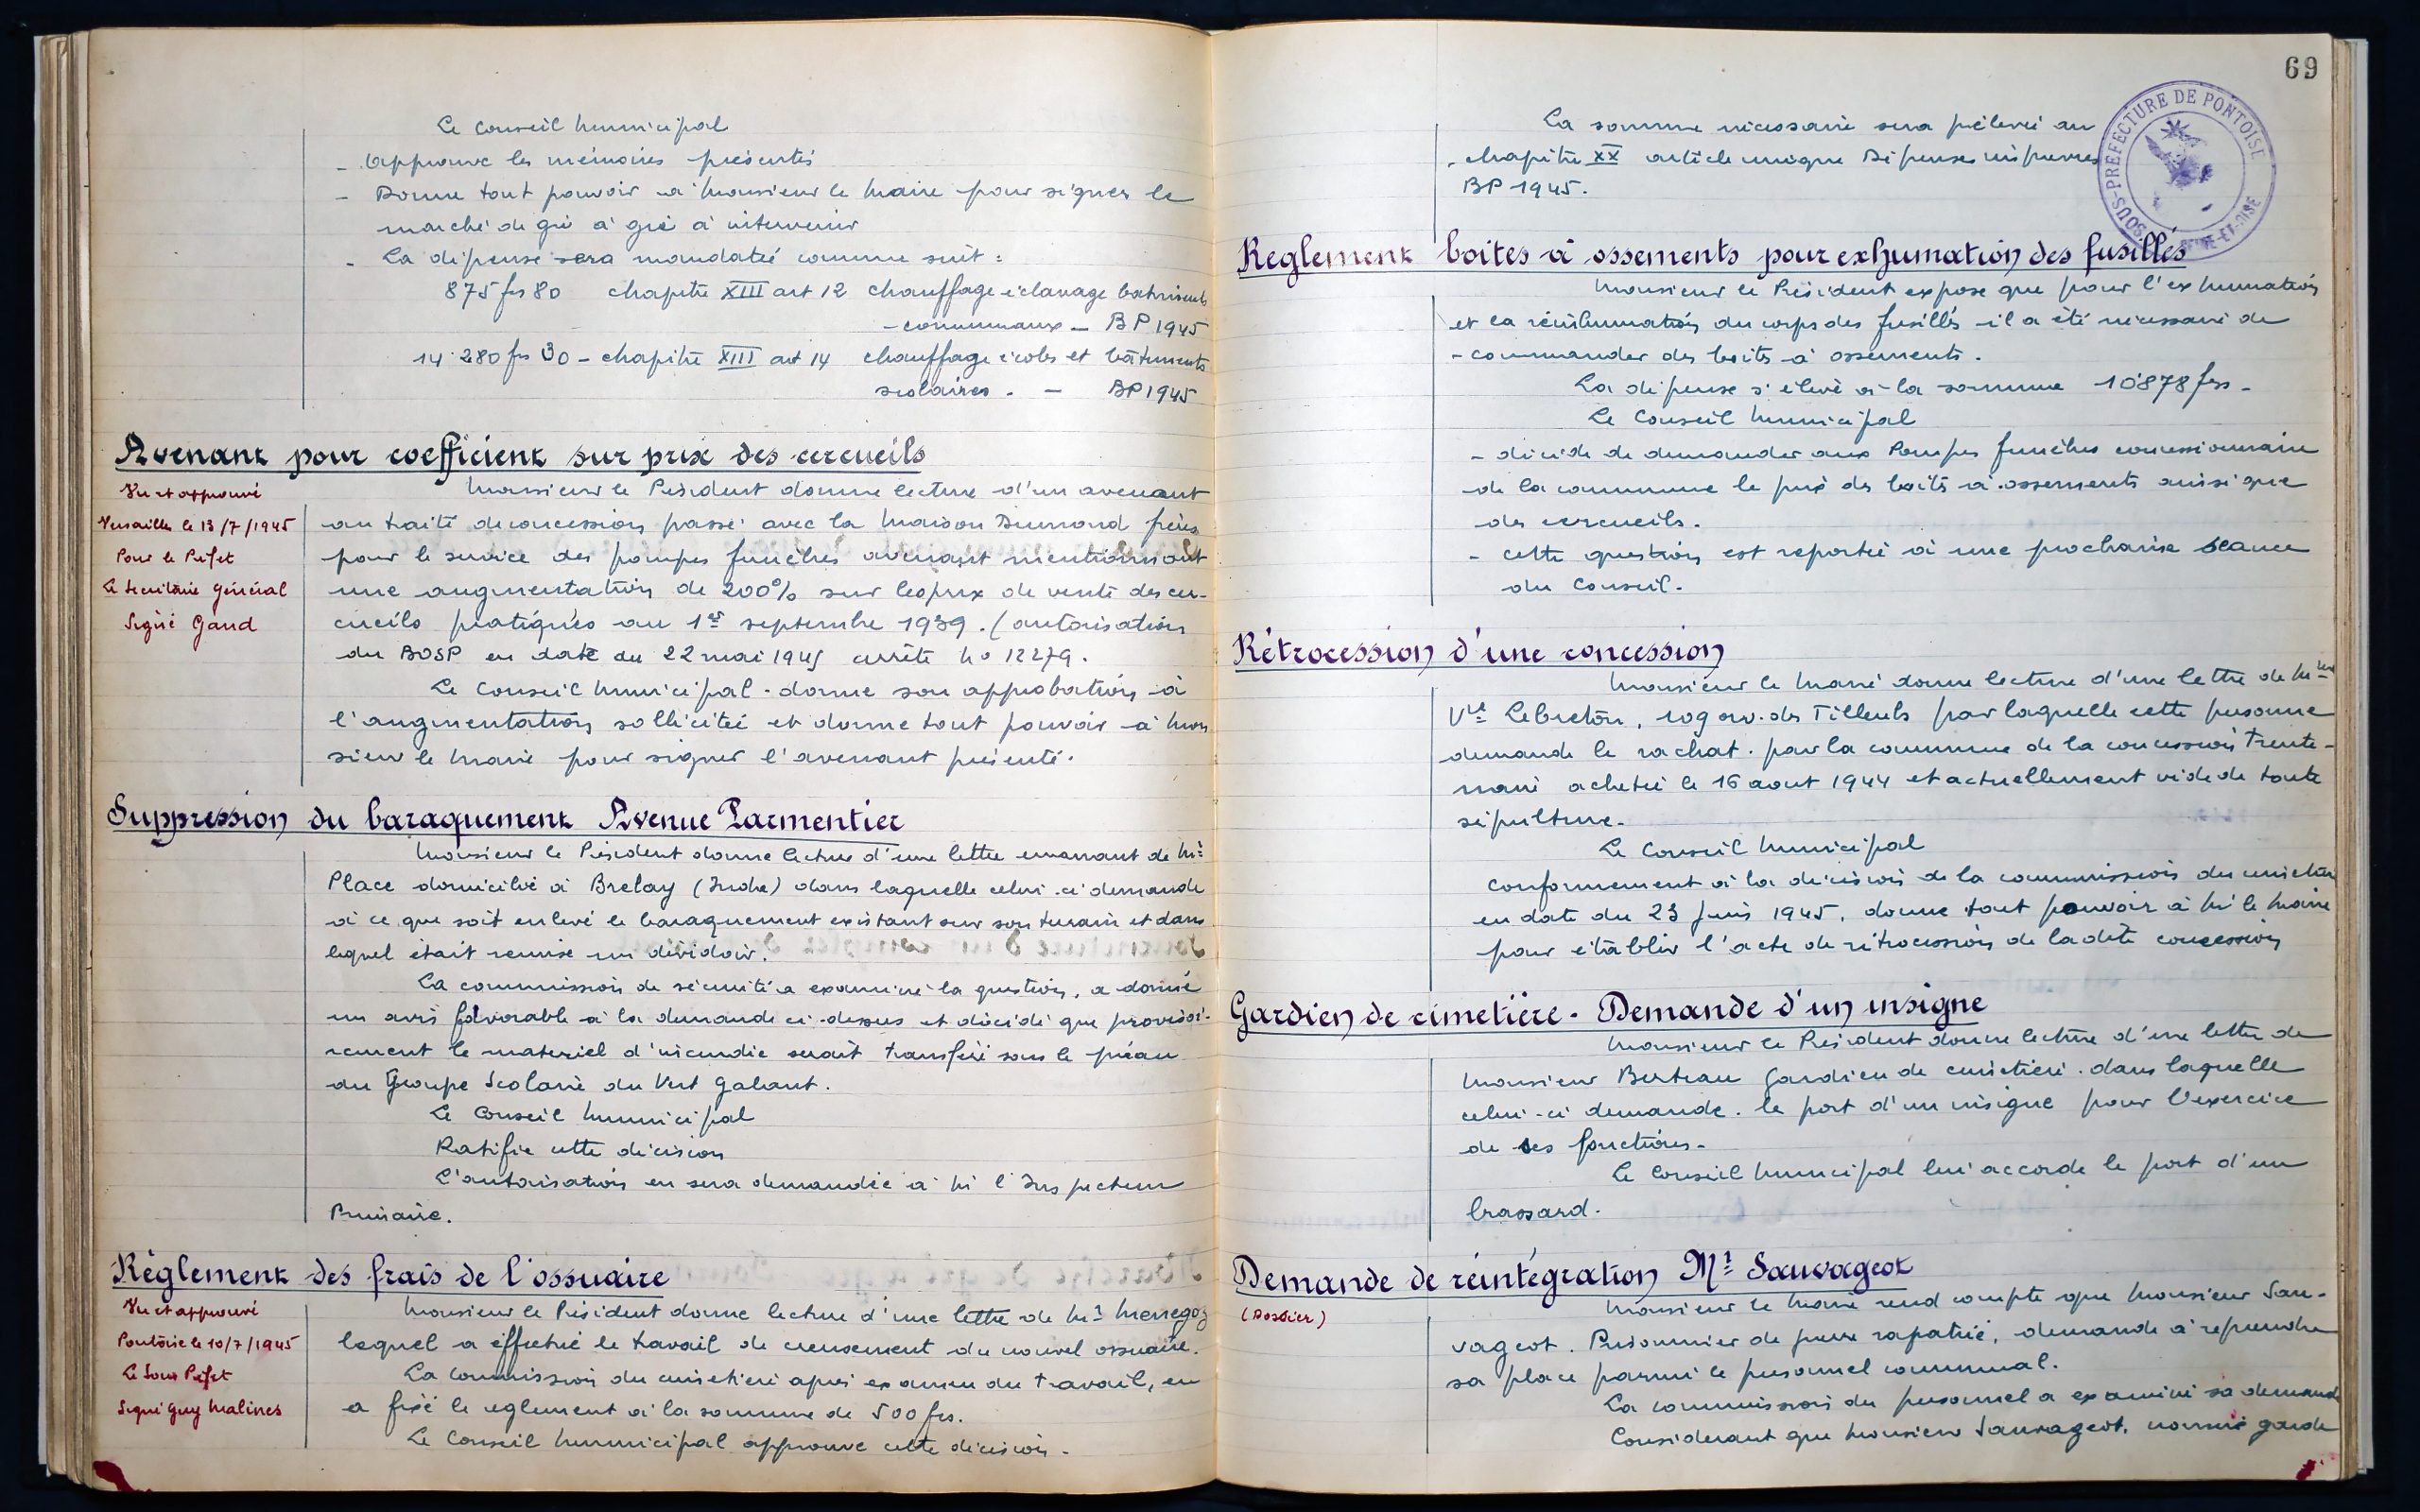 Le Conseil Municipal
- Approuve les mémoires présentés
- Donne tout pouvoir à Monsieur le Maire pour signer le
marché de gré à gré à intervenir
- La dépense sera mandatée comme suit :
875 frs 80 chapitre XIII art 12 chauffage éclairage batiments
- communaux - BP 1945
14.280 frs 30 - chapitre XIII art 14 chauffage écoles et bâtiments
scolaires. - BP 1945
Avenant pour coefficient sur prix des cercueils
Vu et approuvé
Versailles le 13/7/1945
Pour le Préfet
Le Secrétaire Général
Signé Gand
Monsieur le Président donne lecture d'un avenant
au traité de concession passé avec la Maison Dumond frères
pour le service des pompes funèbres avenant mentionnant
une augmentation de 200% sur les prix de vente des cer-
cueils pratiqués au 1er septembre 1939. (autorisation
du BOSP en date du 22 mai 1945 arrêté No 12279.
Le Conseil Municipal - donne son approbation à
l'augmentation sollicitée et donne tout pouvoir à Mon
sieur le Maire pour signer l'avenant présenté.
Suppression du baraquement Avenue Parmentier
Monsieur le Président donne lecture d'une lettre émanant de Mr
Place domicilié à Brelay (Indre) dans laquelle celui-ci demande
à ce que soit enlevé le baraquement existant sur son terrain et dans
lequel était remisé un dévidoir.
La commission de sécurité a examiné la question, a donné
un avis favorable à la demande ci-dessus et décidé que provisoi-
rement le materiel d'incendie serait transféré sous le préau
du Groupe Scolaire du Vert Galant.
Le Conseil Municipal
Ratifie cette décision
L'autorisation en sera demandée à Mr l'Inspecteur
Primaire.
Règlement des frais de l'ossuaire
Vu et approuvé
Pontoise le 10/7/1945
Le Sous Préfet
Signé Guy Malines
Monsieur le Président donne lecture d'une lettre de Mr Menegoz
lequel a éffectué le travail de creusement du nouvel ossuaire.
La commission du cimetière après examen du travail, en
a fixé le reglement à la somme de 500 frs.
Le Conseil Municipal approuve cette décision -
69
SOUS-PRÉFECTURE DE PONTOISE
SEINE-ET-OISE
La somme nécessaire sera prélevée au
chapitre XX article unique Dépenses imprévues
BP 1945.
Reglement boites à ossements pour exhumation des fusillés
Monsieur le Président expose que pour l'exhumation
et la réinhumation du corps des fusillés il a été nécessaire de
- commander des boites à ossements.
La dépense s'élève à la somme 10878 frs -
Le Conseil Municipal
- décide de demander aux Pompes funèbres concessionnaire
de la commune le prix des boites à ossements ainsi que
des cercueils.
- cette question est reportée à une prochaine séance
du Conseil.
Rétrocession d'une concession
Monsieur le Maire donne lecture d'une lettre de Mme
Vve Lebreton, 109 av. des Tilleuls par laquelle cette personne
demande le rachat par la commune de la concession trente-
naire achetée le 16 aout 1944 et actuellement vide de toute
sépulture -
Le Conseil Municipal
conformement à la décision de la commission du cimetière
en date du 23 juin 1945, donne tout pouvoir à Mr le Maire
pour établir l'acte de rétrocession de la dite concession
Gardien de cimetière - Demande d'un insigne
Monsieur le Président donne lecture d'une lettre de
Monsieur Berteau Gardien de cimetière dans laquelle
celui-ci demande le port d'un insigne pour l'exercice
de ses fonctions -
Le Conseil Municipal lui accorde le port d'un
brassard.
Demande de réintégration Mr Sauvageot
(Dossier)
Monsieur le Maire rend compte que Monsieur Sau-
vageot. Prisonnier de guerre rapatrié, demande à reprendre
sa place parmi le personnel communal.
La commission du personnel a examiné sa demande
Considerant que Monsieur Sauvageot, nommé garde